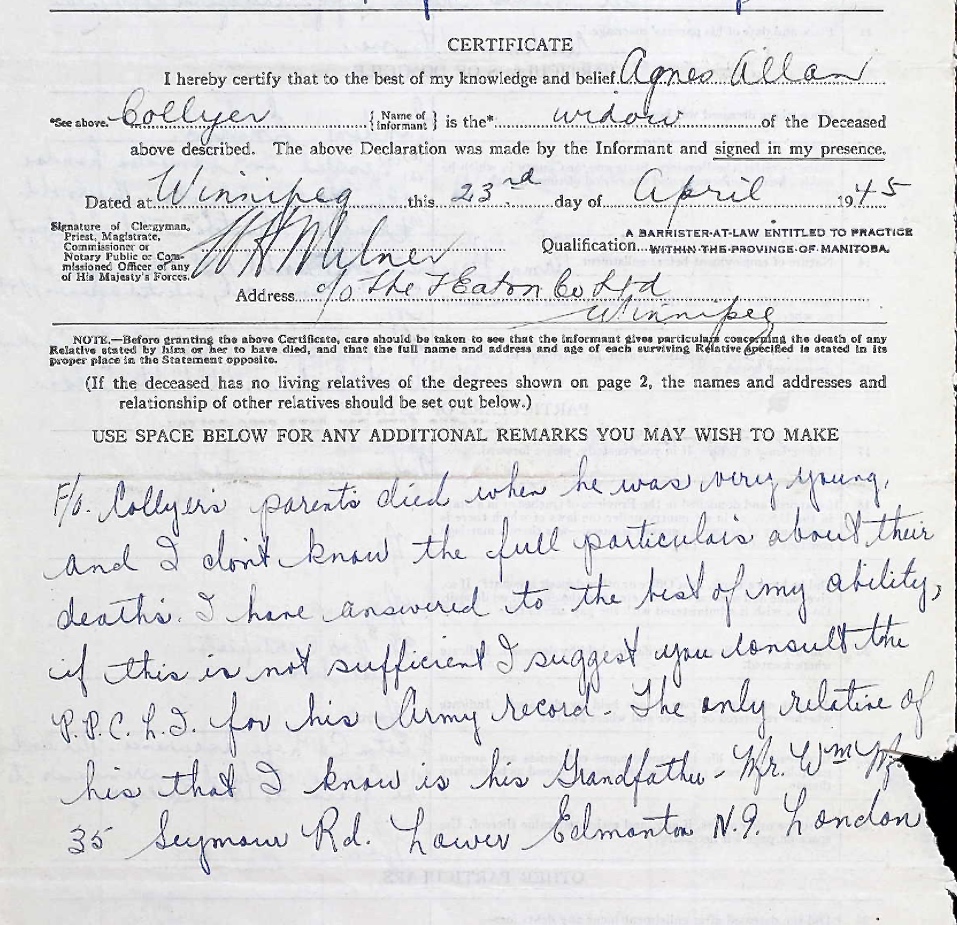 CERTIFICATE
I hereby certify that to the best of my knowledge and belief Agnes Allan
*See above. Collyer {Name of Informant} is the* widow of the Deceased
above described. The above Declaration was made by the Informant and signed in my presence.
Dated at Winnipeg this 23rd day of April 1945
Signature of Clergyman, Priest, Magistrate, Commissioner or Notary Public or Commissioned Officer of any of His Majesty's Forces. W H Milner
Qualification A BARRISTER-AT-LAW ENTITLED TO PRACTICE WITHIN THE PROVINCE OF MANITOBA.
Address c/o The T Eaton Co Ltd
Winnipeg
NOTE.—Before granting the above Certificate, care should be taken to see that the informant gives particulars concerning the death of any
Relative stated by him or her to have died, and that the full name and address and age of each surviving Relative specified is stated in its
proper place in the Statement opposite.
(If the deceased has no living relatives of the degrees shown on page 2, the names and addresses and
relationship of other relatives should be set out below.)
USE SPACE BELOW FOR ANY ADDITIONAL REMARKS YOU MAY WISH TO MAKE
F/O. Collyer's parents died when he was very young,
and I don't know the full particulars about their
deaths. I have answered to the best of my ability,
if this is not sufficient I suggest you consult the
P.P.C.L.I. for his Army record - The only relative of
his that I know is his Grandfather - Mr. Wm
35 Seymour Rd. Lower Edmonton N.9. London